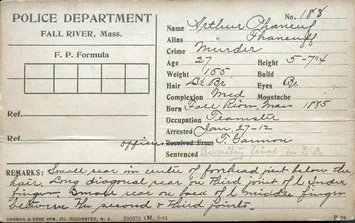 POLICE DEPARTMENT
FALL RIVER, Mass.
F. P. Formula
Ref.
Ref.
No. 188
Name Arthur Phaneuf
Alias " Phaneuff
Crime Murder
Age 27 Height 5-7¼
Weight 155 Build
Hair Dk. Br. Eyes Br
Complexion Med Moustache
Born Fall River Mass 1885
Occupation Teamster
Arrested Jan. 27-12
officer Received from T. Gannon
Sentenced Awaiting trial in
REMARKS: Small scar in center of forehead just below the
hair. Long diagonal scar on third joint of L under
finger. Small scar on face of L middle finger
between the second & third joints.
YAWMAN & ERBE MFG. CO. ROCHESTER, N. Y.